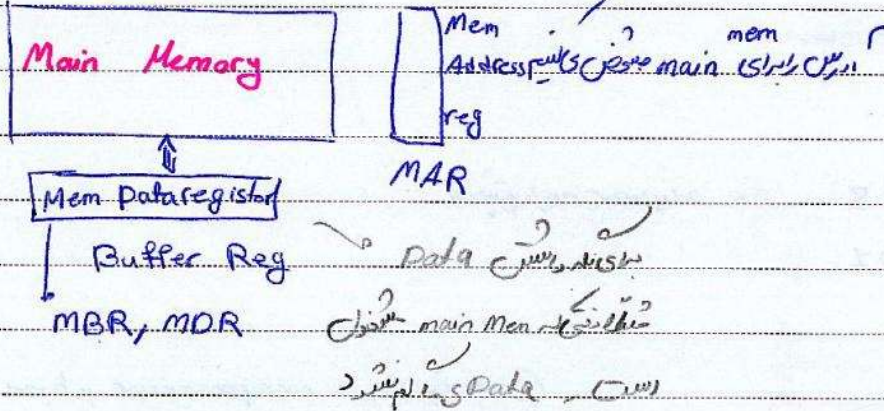 Main Memory
Mem
Address
reg
آدرس را برای main mem مشخص می‌کند
MAR
Mem Dataregister
Buffer Reg
MBR, MDR
برای نگه داشتن Data
main Mem مشغول
است Data